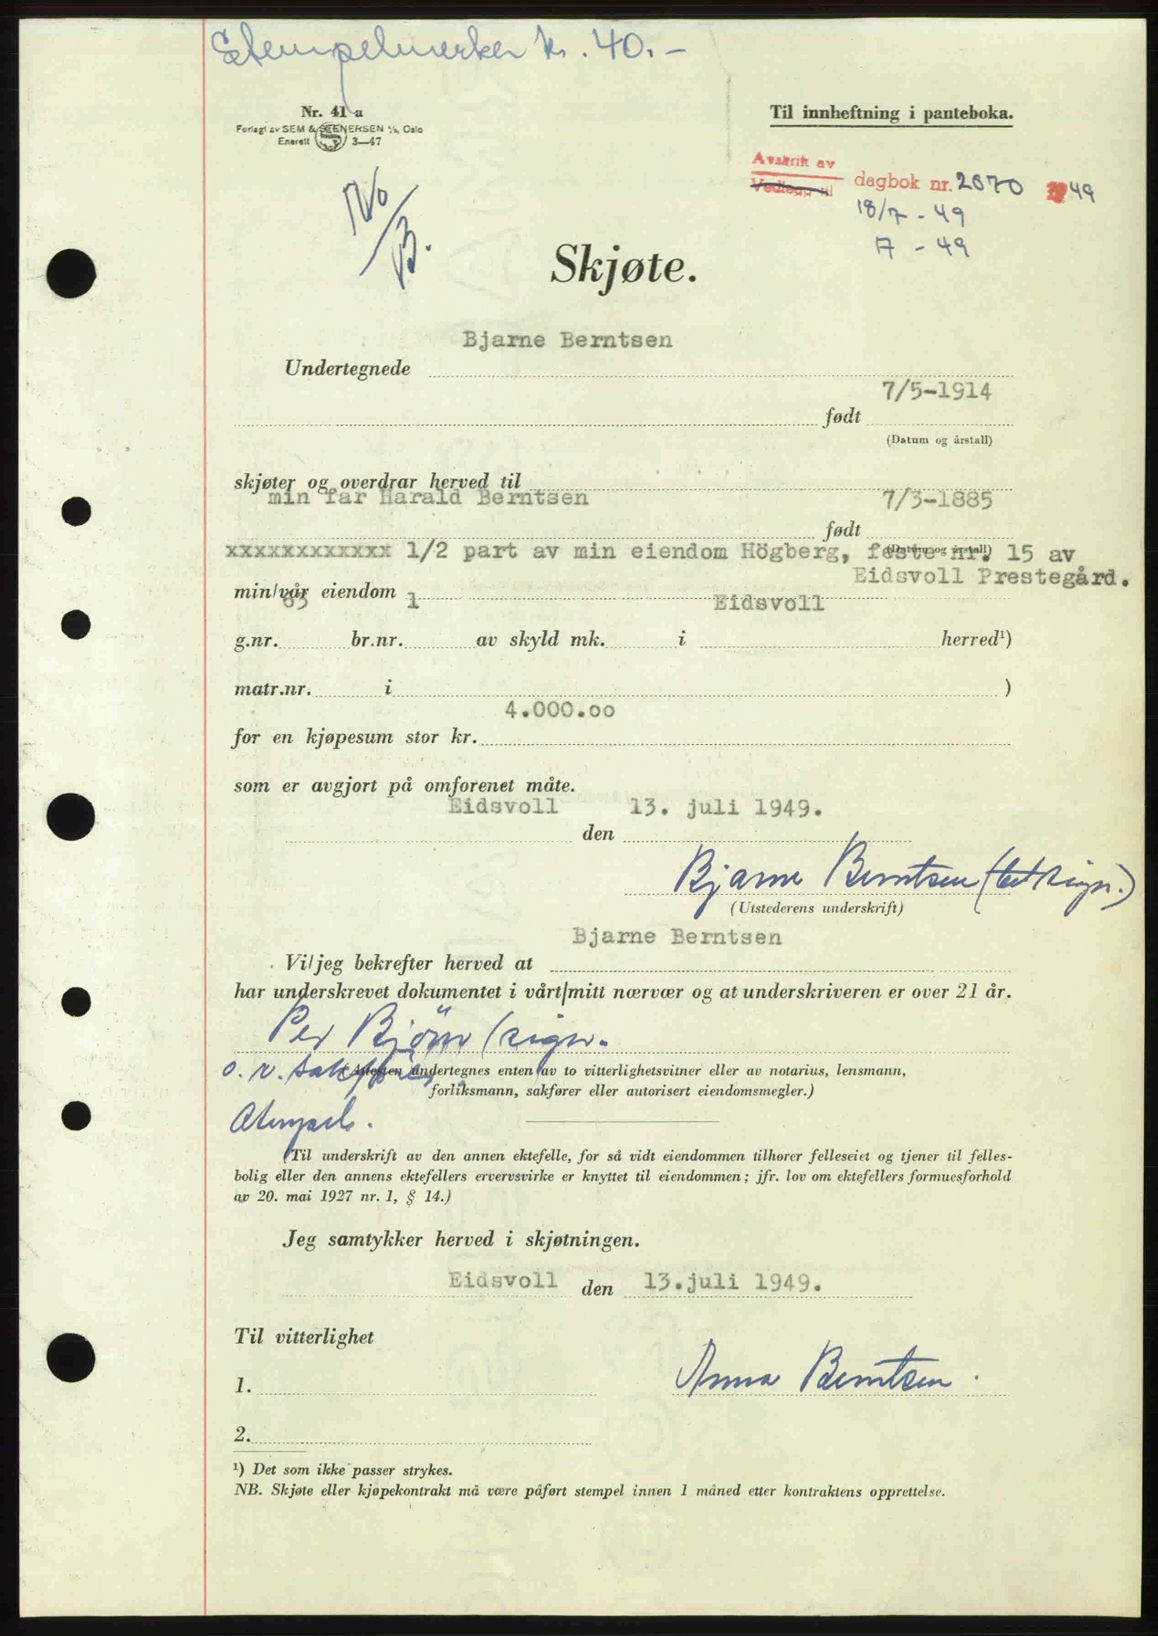 Stempelmerker kr. 40.-
Nr. 41 a
Forlagt av SEM & STENERSEN A/S, Oslo
Enerett 3—47
Til innheftning i panteboka.
Avskrift av
Vedlegg til dagbok nr. 2670 1949
18/7 - 49
A - 49
No/B.
Skjøte.
Bjarne Berntsen
Undertegnede
7/5-1914
født
(Datum og årstall)
skjøter og overdrar herved til
min far Harald Berntsen 7/3-1885
født
(Datum og årstall)
xxxxxxxxxxxx 1/2 part av min eiendom Högberg, feste nr. 15 av
Eidsvoll Prestegård.
min/vår eiendom
65 1 Eidsvoll
g.nr. br.nr. av skyld mk. i herred¹)
matr.nr. i )
4.000.oo
for en kjøpesum stor kr.
som er avgjort på omforenet måte.
Eidsvoll 13. juli 1949.
den
Bjarne Berntsen (sign.)
(Utstederens underskrift)
Bjarne Berntsen
Vi/jeg bekrefter herved at
har underskrevet dokumentet i vårt/mitt nærvær og at underskriveren er over 21 år.
Per Bjönn (sign.
o. r. sakfører
(Attesten undertegnes enten av to vitterlighetsvitner eller av notarius, lensmann,
forliksmann, sakfører eller autorisert eiendomsmegler.)
stempel.
(Til underskrift av den annen ektefelle, for så vidt eiendommen tilhører felleseiet og tjener til felles-
bolig eller den annens ektefellers ervervsvirke er knyttet til eiendommen; jfr. lov om ektefellers formuesforhold
av 20. mai 1927 nr. 1, § 14.)
Jeg samtykker herved i skjøtningen.
Eidsvoll den 13.juli 1949.
Til vitterlighet
Anna Berntsen.
1.
2.
¹) Det som ikke passer strykes.
NB. Skjøte eller kjøpekontrakt må være påført stempel innen 1 måned etter kontraktens opprettelse.